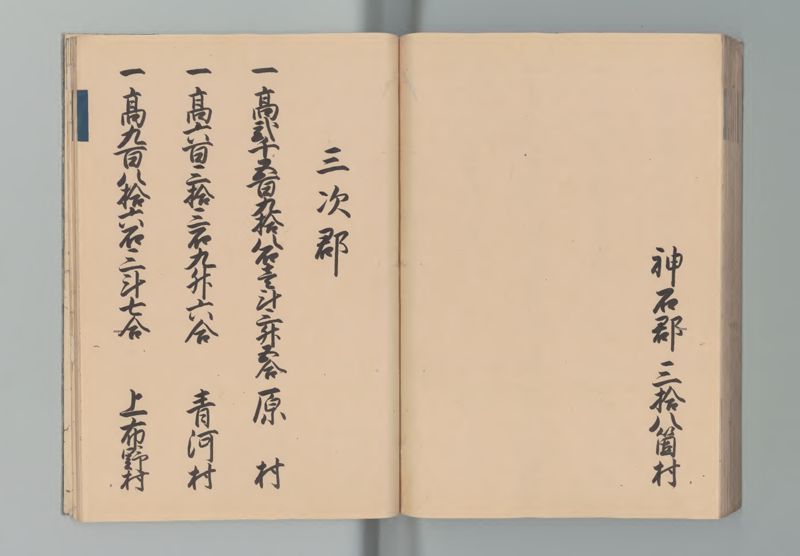 神石郡三拾八箇村
三次郡
一高弐千五百九拾八石壱斗二升五合原村
一高六百三拾三石九升六合青河村
一高九百八拾六石三斗七合上布野村